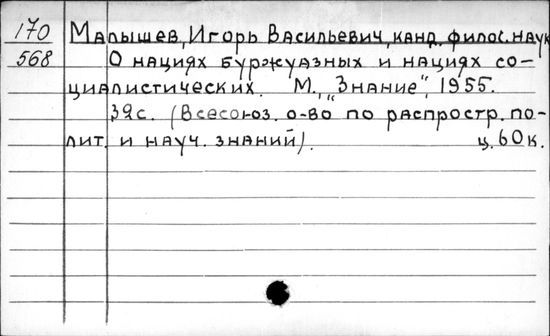 170
568
Малышев, Игорь Васильевич, канд. филос. наук
О нациях буржуазных и нациях со-
циалистических. М., "Знание", 1955.
39с. (Всесоюз. о-во по распростр. по-
лит. и науч. знаний). ц. 60к.